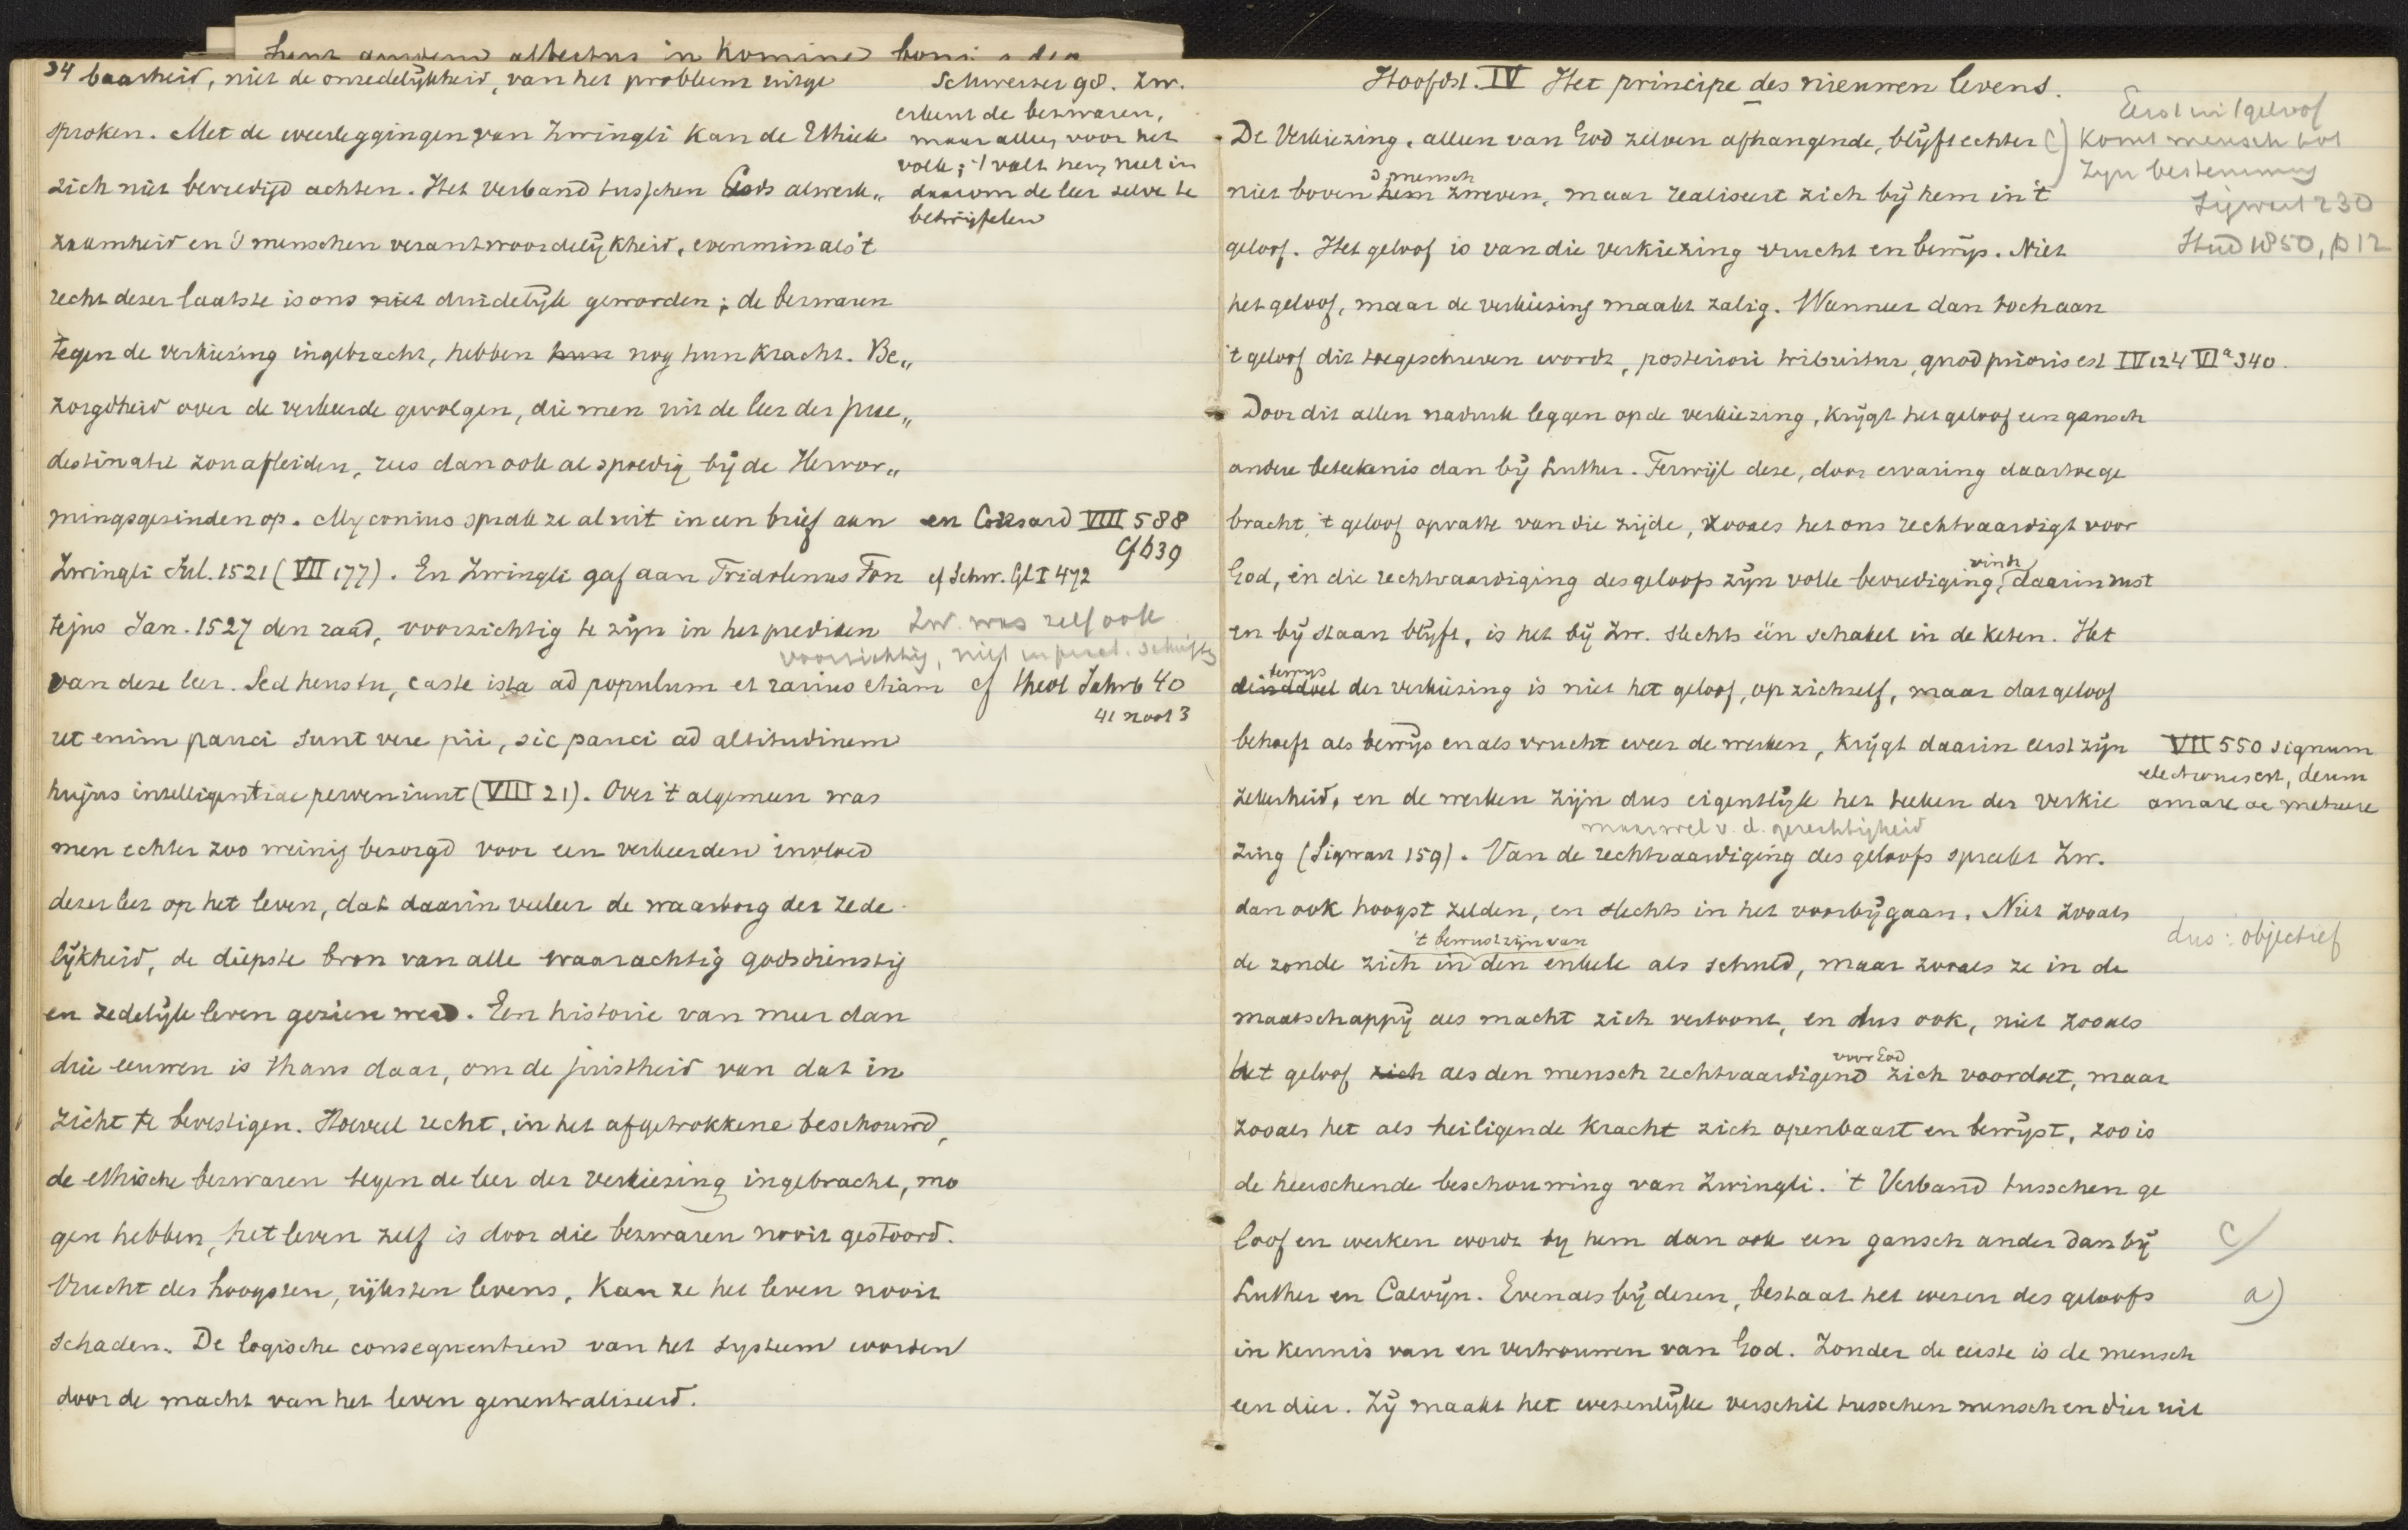 34 baarheid, niet de onzedelijkheid, van het probleem uitge
sproken. Met de weerleggingen van Zwingli kan de Ethiek
zich niet bevredigd achten. Het verband tusschen Gods alwerk„
zaamheid en 's menschen verantwoordelijkheid, evenmin als 't
recht dezer laatste is ons niet duidelijk geworden; de bezwaren
tegen de verkiezing ingebracht, hebben hun nog hun kracht. Be„
zorgdheid over de verkeerde gevolgen, die men uit de leer der prae„
destinatie zou afleiden, rees dan ook al spoedig bij de Hervor„
mingsgezinden op. Myconius sprak ze al uit in een brief aan
Zwingli Jul. 1521 (VII 177). En Zwingli gaf aan Fridolinus Fon
tejus Jan. 1527 den raad, voorzichtig te zijn in het prediken
van deze leer. Sed heus tu, caste ista ad populum et rarius etiam
ut enim pauci sunt vere pii, sic pauci ad altitudinem
hujus intelligentiae perveniunt (VIII 21). Over 't algemeen was
men echter zoo weinig bezorgd voor een verkeerden invloed
dezer leer op het leven, dat daarin veeleer de waarborg der zede
lijkheid, de diepste bron van alle waarachtig godsdienstig
en zedelijk leven gezien werd. Een historie van meer dan
drie eeuwen is thans daar, om de juistheid van dat in
zicht te bevestigen. Hoeveel recht, in het afgetrokkene beschouwd,
de ethische bezwaren tegen de leer der verkiezing ingebracht, mo
gen hebben, het leven zelf is door die bezwaren nooit gestoord.
Vrucht des hoogsten, rijksten levens, kan ze het leven nooit
schaden. De logische consequentien van het systeem worden
door de macht van het leven geneutraliseerd.
Schweizer 98. Zw.
erkent de bezwaren,
maar alles voor het
volk; 't valt hem niet in
daarom de leer zelve te
betwijfelen
en VIII 588
cf b39
cf Schw. Gl I 472
Zw. was zelf ook
voorzichtig, niet
cf theol Jahrb 40
41 noot 3
Hoofdst. IV Het principe des nieuwen levens.
De Verkiezing, alleen van God zelven afhangende, blijft echter
's mensch
niet boven hem zweven, maar realiseert zich bij hem in 't
geloof. Het geloof is van die verkiezing vrucht en bewijs. Niet
het geloof, maar de verkiezing maakt zalig. Wanneer dan toch aan
't geloof dit toegeschreven wordt, posteriori tribuitur, quod prioris est IV 124 VIa 340.
Door dit allen nadruk leggen op de verkiezing, krijgt het geloof een gansch
andere beteekenis dan bij Luther. Terwijl deze, door ervaring daartoe ge
bracht, 't geloof opvatte van die zijde, zooals het ons rechtvaardigt voor
God, en die rechtvaardiging des geloofs zijn volle bevrediging vindt, daarin rust
en bij staan blijft, is het bij Zw. slechts één schakel in de keten. Het
bewijs
der verkiezing is niet het geloof, op zichzelf, maar dat geloof
behoeft als bewijs en als vrucht weer de werken, krijgt daarin eerst zijn
zekerheid, en de werken zijn dus eigenlijk het teeken der verkie
maar wel v. d. gerechtigheid
zing (Sigwart 159). Van de rechtvaardiging des geloofs spreekt Zw.
dan ook hoogst zelden, en slechts in het voorbijgaan. Niet zooals
't bewustzijn van
de zonde zich in den enkele als schuld, maar zooals ze in de
maatschappij als macht zich vertoont, en dus ook, niet zooals
het geloof zich als den mensch voor God rechtvaardigend zich voordoet, maar
zooals het als heiligende kracht zich openbaart en bewijst, zoo is
de heerschende beschouwing van Zwingli. 't Verband tusschen ge
loof en werken wordt bij hem dan ook een gansch ander dan bij
Luther en Calvijn. Evenals bij dezen, bestaat het wezen des geloofs
in kennis van en vertrouwen van God. Zonder de eerste is de mensch
een dier. Zij maakt het wezenlijke verschil tusschen mensch en dier uit
Eerst uit geloof
komt mensch tot
zijn bestemming
Sigwart 230
Stud 1850, p 12
VII 550 signum
electionis est, deum
amare ac metuere
dus: objectief
c/
a)